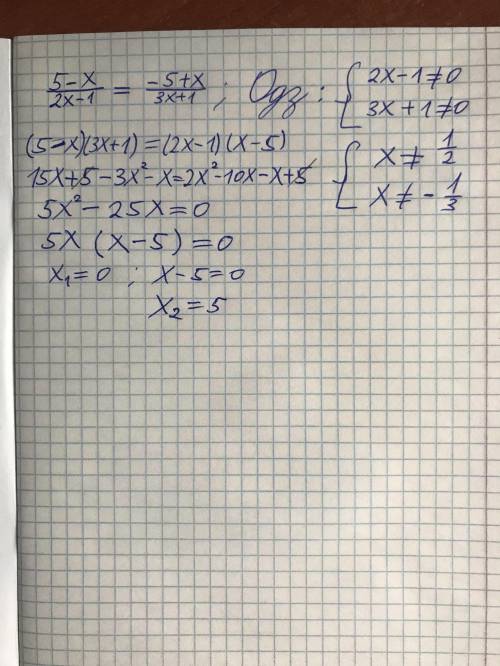 (5-x)/(2x-1) = (-5+x)/(3x+1) ; Одз : { 2x-1≠0
3x+1≠0
(5-x)(3x+1)=(2x-1)(x-5)
{ x≠ 1/2
15x+5-3x²-x=2x²-10x-x+5
x≠ - 1/3
5x²-25x=0
5x (x-5)=0
x₁=0 ; x-5=0
x₂=5